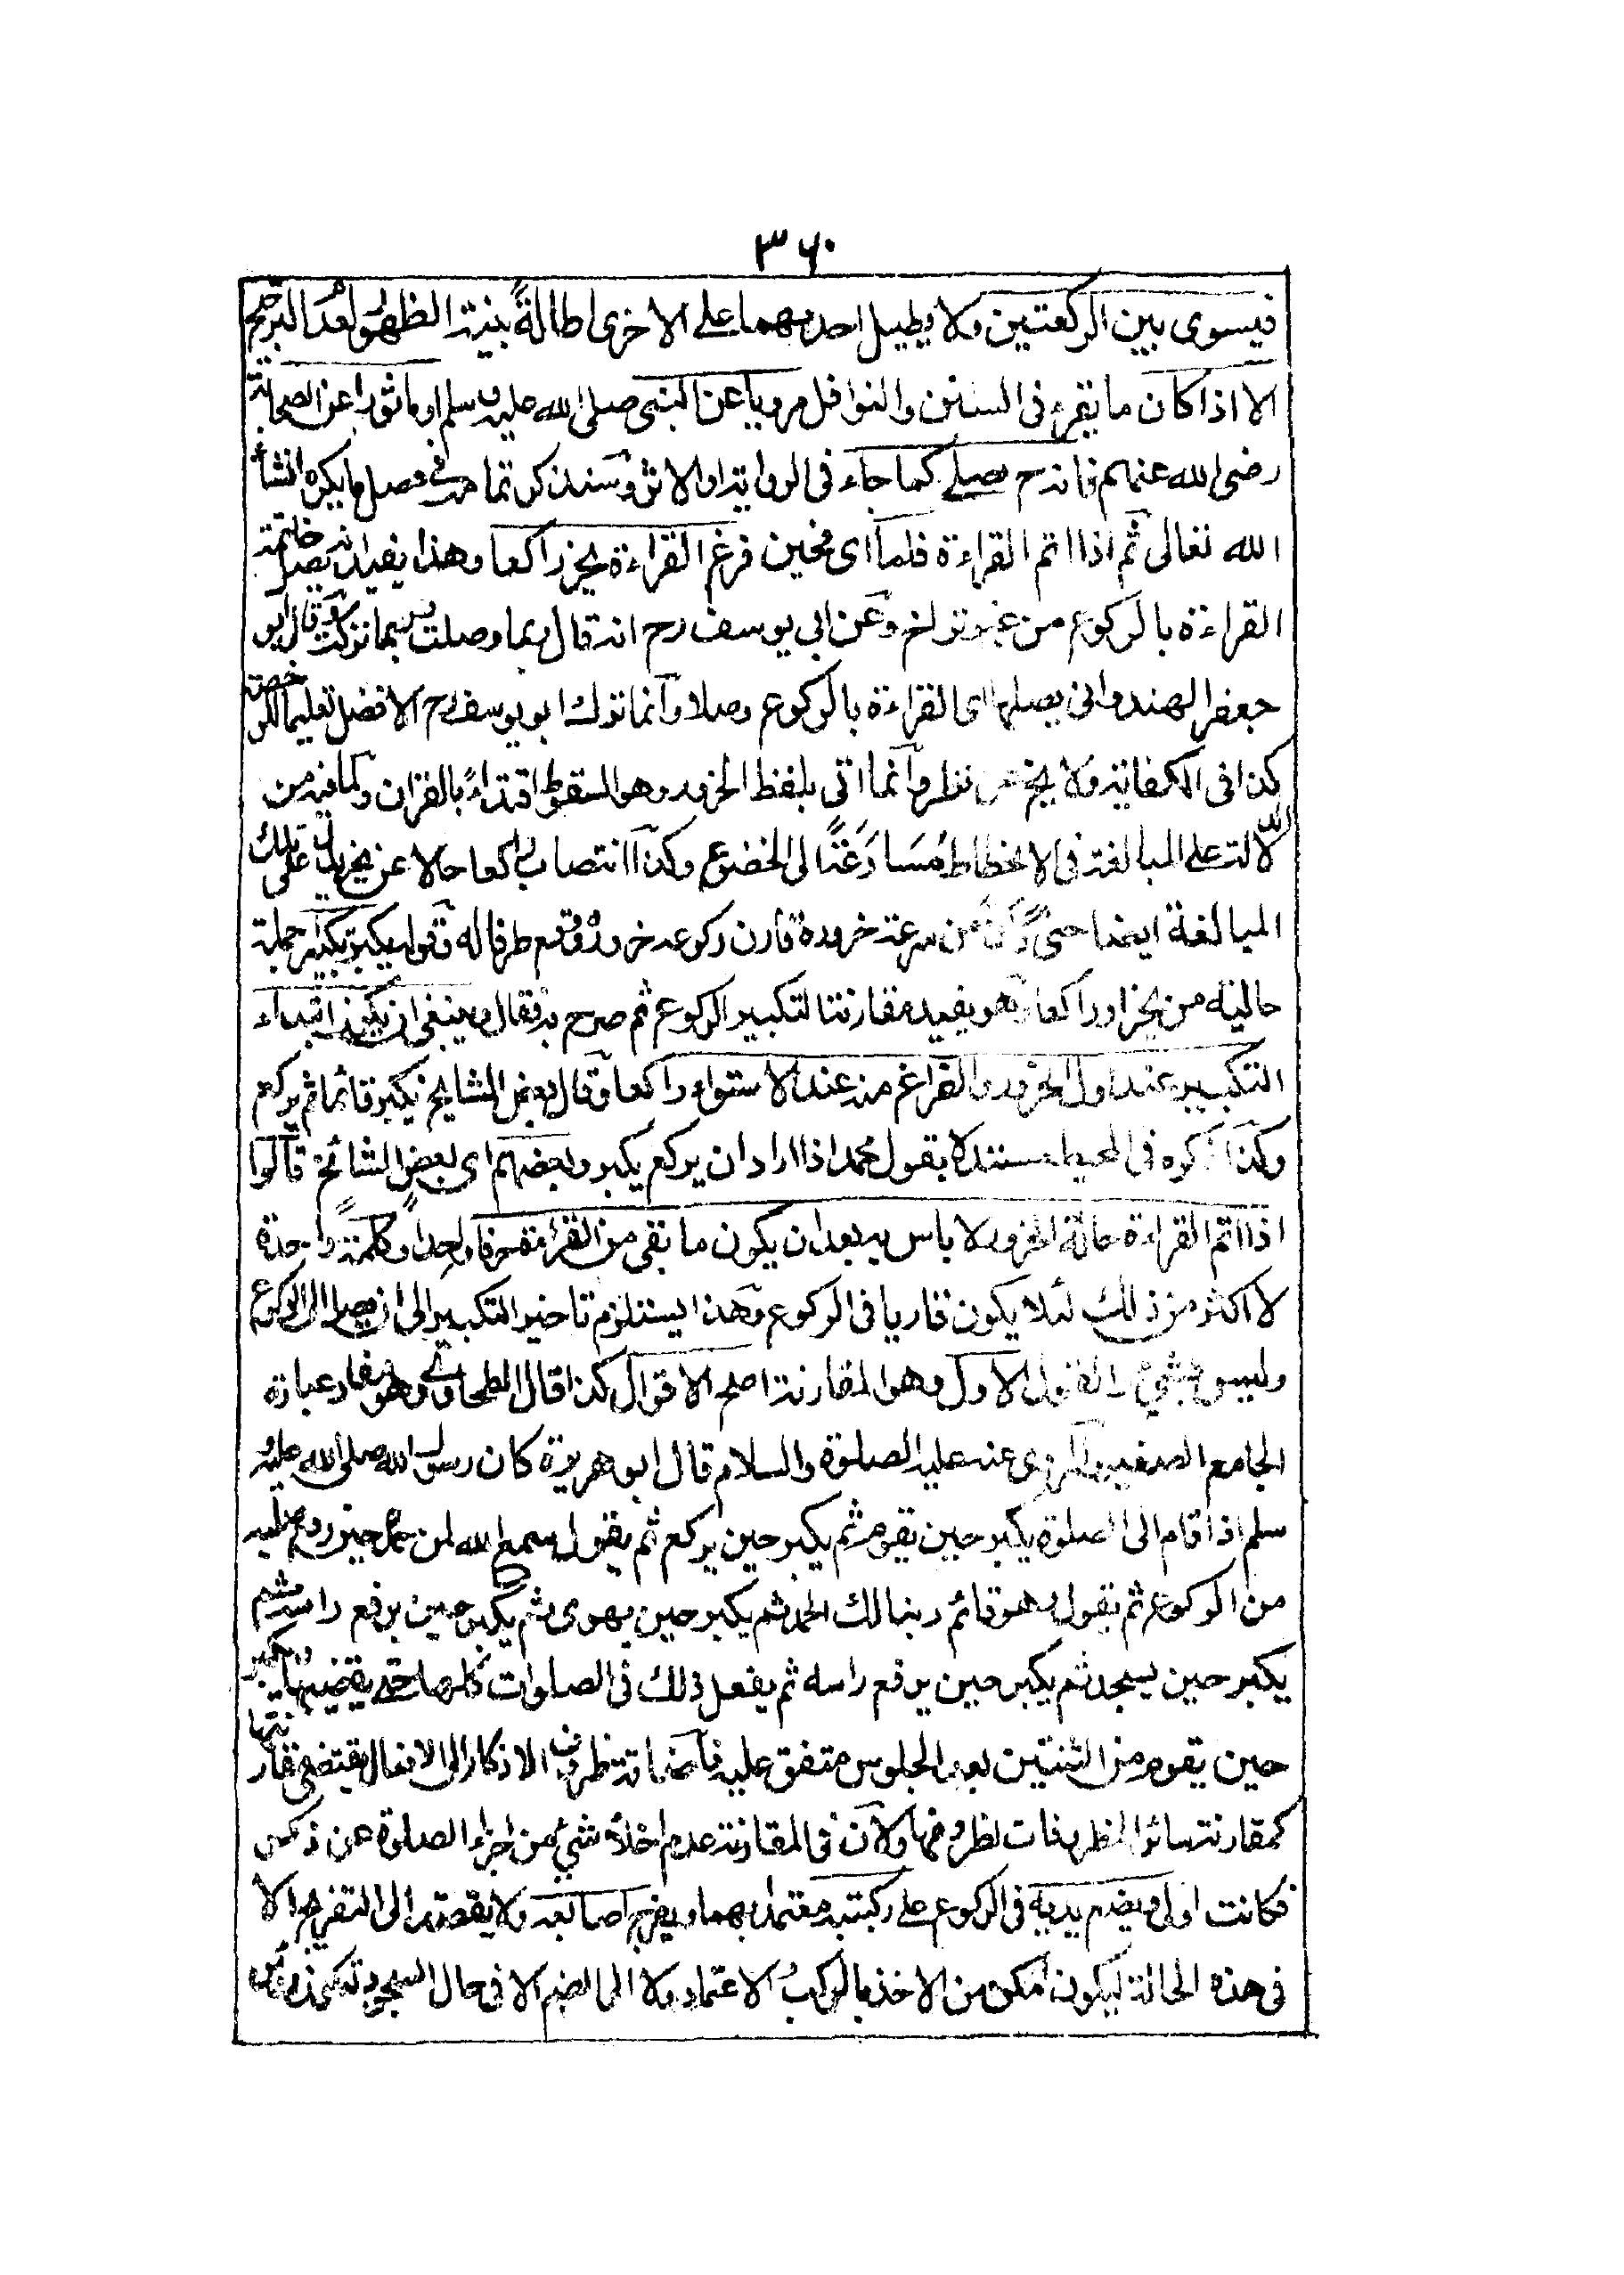 ٣٦٠
فيسوى بين الركعتين ولا يطيل احدىهما على الاخرى اطالةً بينة الظهور لعدم الترجيح
الا اذا كان ما يقرء فى السنن والنوافل مرويا عن النبى صلى الله عليه وسلم او ماثورا عن الصحابة
رضى الله عنهم فانه ح يصلى كما جاء فى الرواية او الاثر وسنذكر تمامه فى فصل ما يكره انشاء
الله تعالى ثم اذا اتم القراءة فلما اى فحين فرغ القراءة يخر راكعا وهذا يفيد انه يصل خاتمة
القراءة بالركوع من غير تراخ وعن ابى يوسف رح انه قال ربما وصلت وربما تركت وقال ابو
جعفر الهندوانى يصلها اى القراءة بالركوع وصلا وانما ترك ابو يوسف رح الافضل تعليما للرخصة
كذا فى الكفاية ولا يخ نظر وانما اتى بلفظ الخرور وهو السقوط اقتداءً بالقران ولما فيه من
الدلالة على المبالغة فى الانحطاط مسارعةً الى الخضوع وكذا انتصاب راكعا حالا عن يخر يدل على تلك
المبالغة ايضا حتى كأن من سرعة خروره قارن ركوعه خروره ووقع طرفا له وقوله يكبر تكبيرا جملة
حالية من يخر او راكعا وهو يفيد مقارنتا لتكبير الركوع ثم صرح به فقال وينبغى ان يكون ابتداء
التكبير عند اول الخرور والفراغ منه عند الاستواء راكعا وقال بعض المشايخ يكبر قائما ثم يركع
وكذا ذكره فى المحيط مستندلا بقول محمد اذا اراد ان يركع يكبر وبعضهم اى بعض المشائخ قالوا
اذا اتم القراءة حالة الخرور لا باس به بعد ان يكون ما بقى من القراءة حرفا واحداً او كلمةً واحدة
لا اكثر من ذلك لئلا يكون قاريا فى الركوع وهذا يستلزم تاخير التكبير الى ان يصل الى الركوع
وليس بشئ والقول الاول وهو المقارنة اصلح الاقوال كذا قال الطحاوى وهو مفاد عبارة
الجامع الصغير والمروى عنه عليه الصلوة والسلام قال ابو هريرة كان رسول الله صلى الله عليه و
سلم اذا قام الى الصلوة يكبر حين يقوم ثم يكبر حين يركع ثم يقول سمع الله لمن حمده حين يرفع صلبه
من الركوع ثم يقول وهو قائم ربنا لك الحمد ثم يكبر حين يهوى ثم يكبر حين يرفع راسه ثم
يكبر حين يسجد ثم يكبر حين يرفع راسه ثم يفعل ذلك فى الصلوات كلها حتى يقضيها ويكبر
حين يقوم من الثنتين بعد الجلوس متفق عليه فاضافة ظروف الاذكار الى الافعال يقتضى مقارنتها
كمقارنة سائر المظروفات لظروفها ولان فى المقارنة عدم اخلاء شئ من اجزاء الصلوة عن ذكر
فكانت اولى ويضع يديه فى الركوع على ركبتيه معتمدا بهما ويفرج اصابعه ولا يقصد الى التفريج الا
فى هذه الحالة ليكون امكن من الاخذ بالركب والاعتماد ولا الى الضم الا فى حال السجود